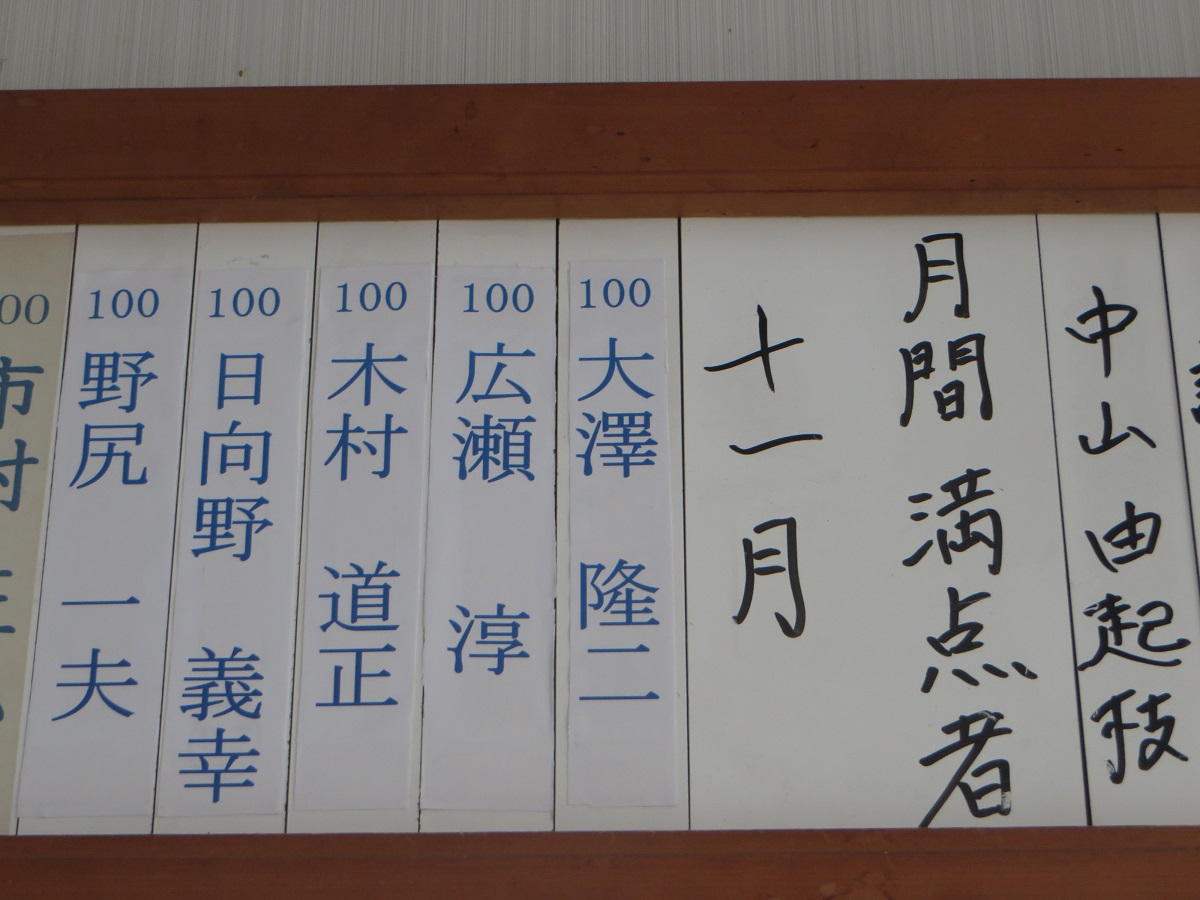 中山由起枝
月間満点者
十一月
100 大澤 隆二
100 広瀬 淳
100 木村 道正
100 日向野 義幸
100 野尻 一夫
00 市村